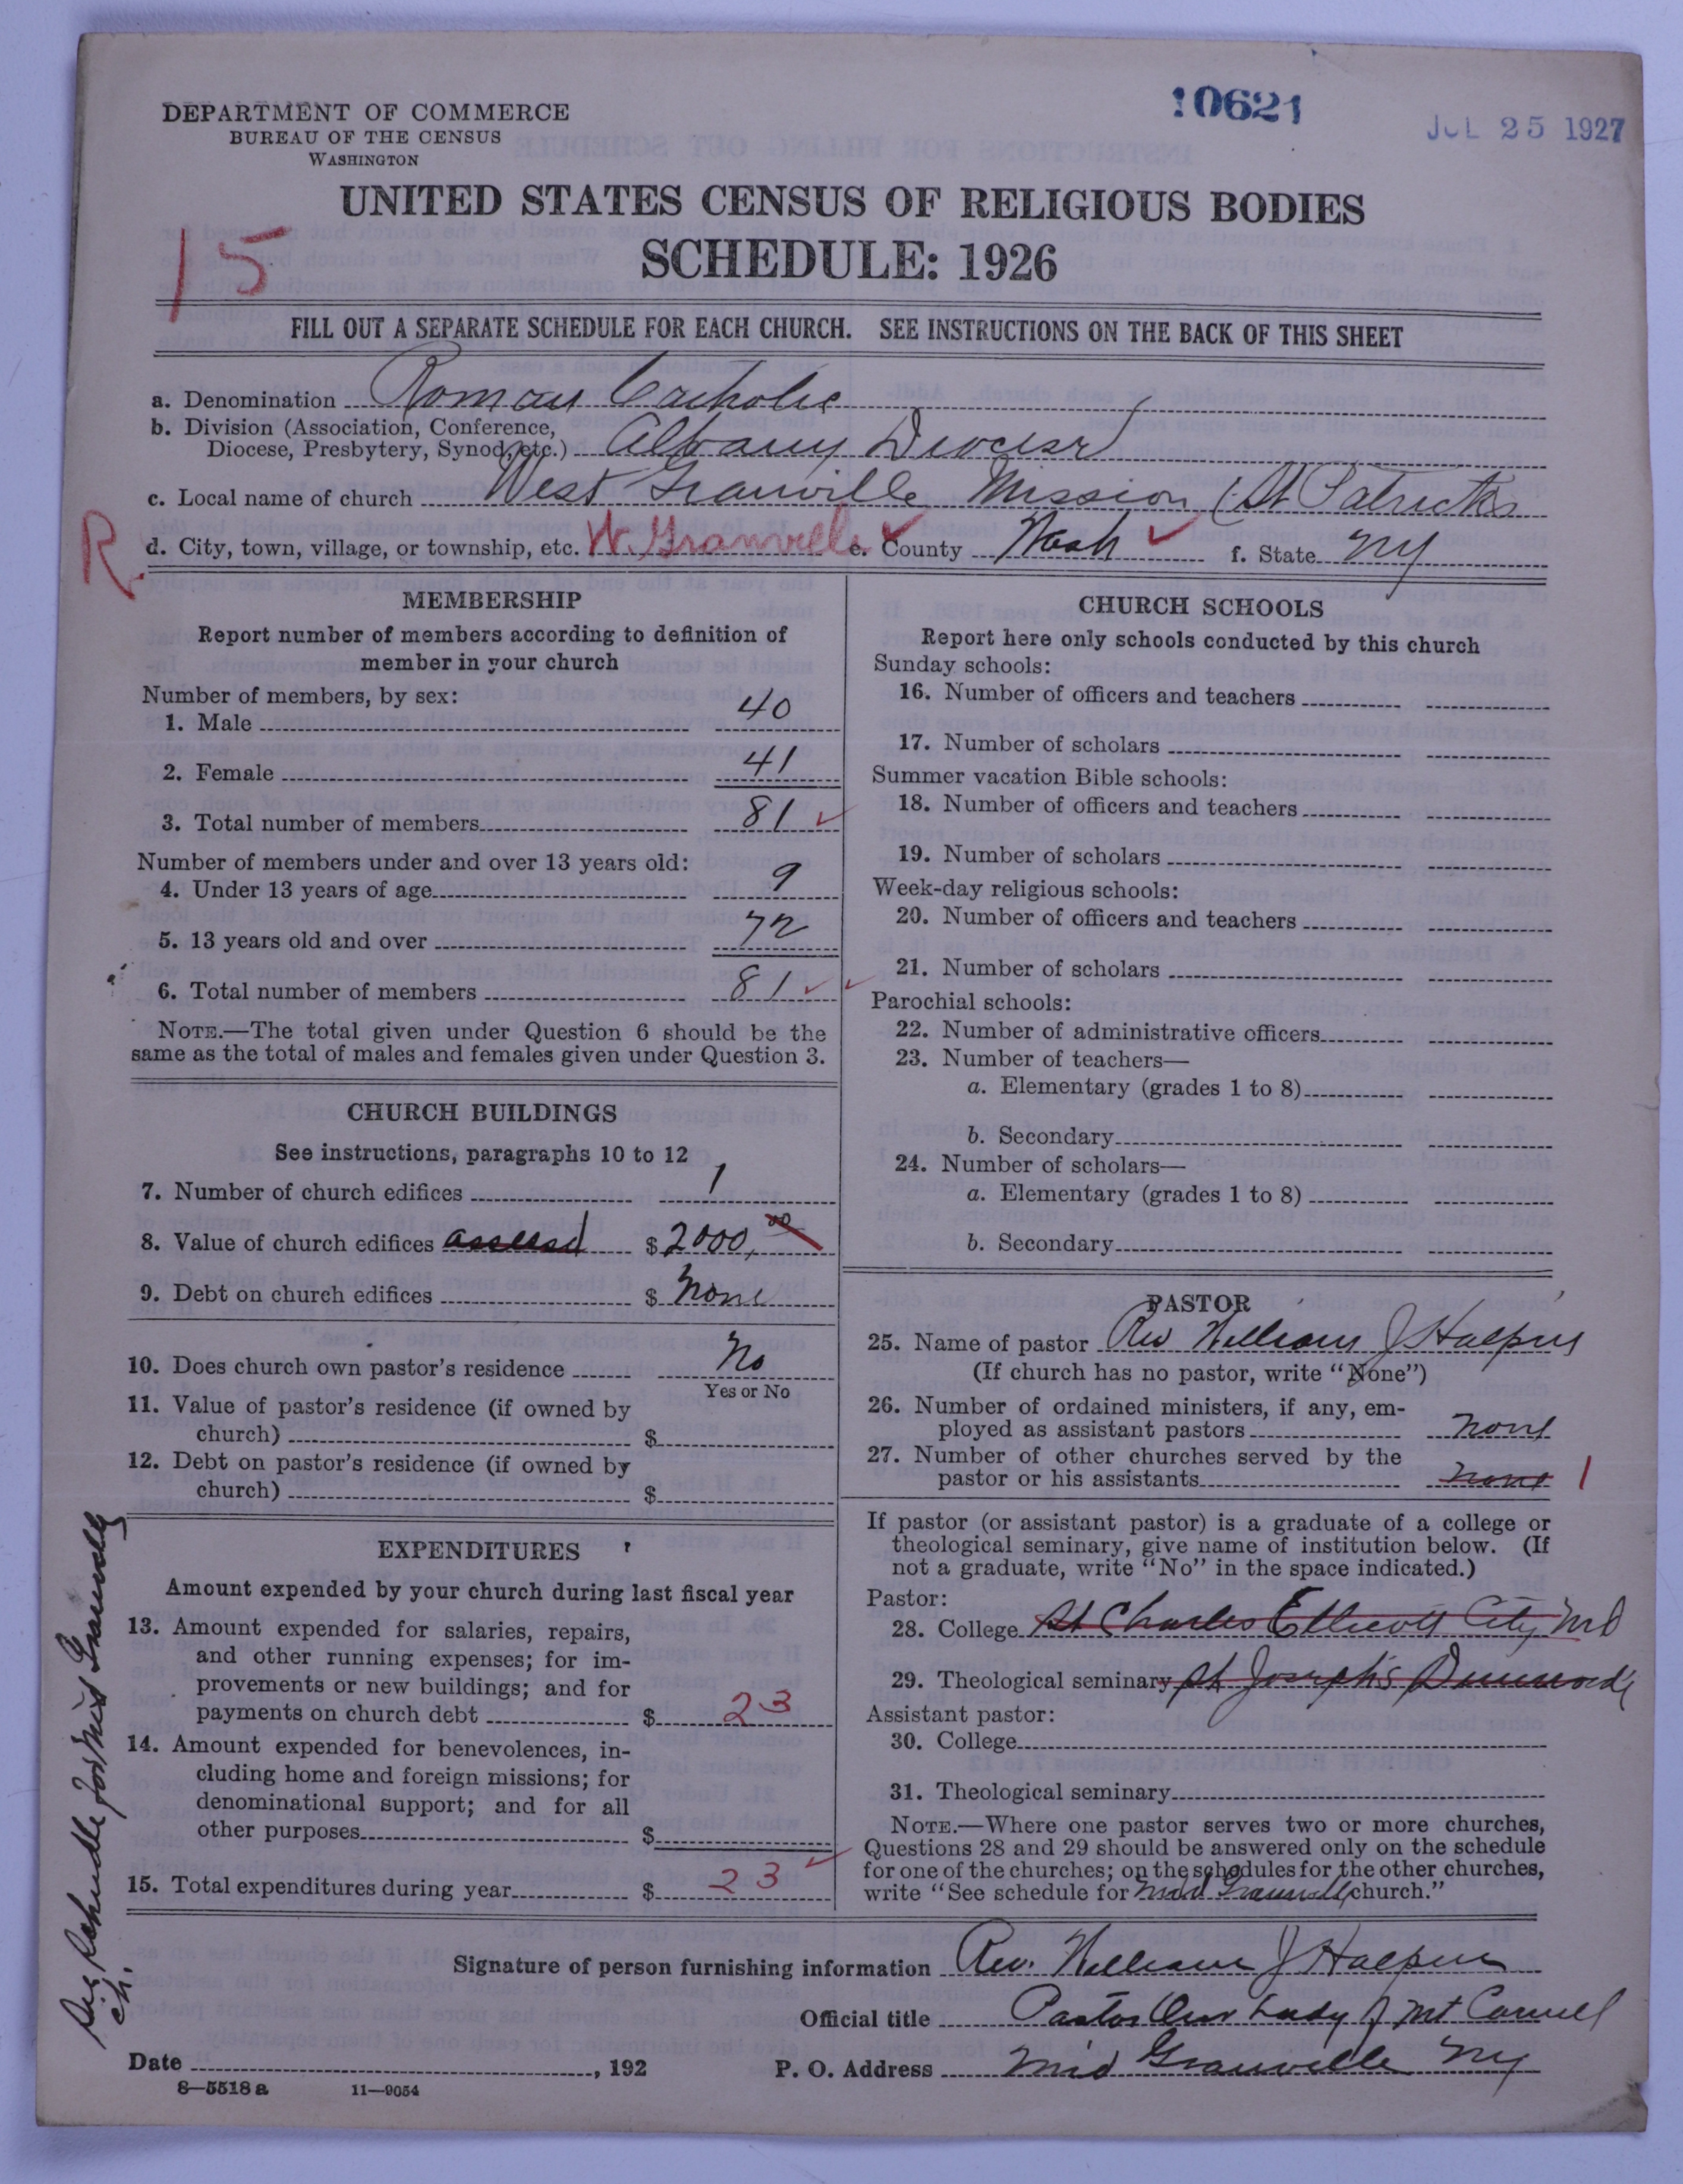 DEPARTMENT OF COMMERCE
BUREAU OF THE CENSUS
WASHINGTON
10621
JUL 25 1927
UNITED STATES CENSUS OF RELIGIOUS BODIES
SCHEDULE: 1926
15
FILL OUT A SEPARATE SCHEDULE FOR EACH CHURCH. SEE INSTRUCTIONS ON THE BACK OF THIS SHEET
a. Denomination Roman Catholic
b. Division (Association, Conference,
Diocese, Presbytery, Synod, etc.) Albany Diocese
c. Local name of church West Granville Mission (St Patricks
R. d. City, town, village, or township, etc. W. Granville e. County Wash f. State NY
MEMBERSHIP
Report number of members according to definition of
member in your church
Number of members, by sex:
1. Male 40
2. Female 41
3. Total number of members 81
Number of members under and over 13 years old:
4. Under 13 years of age 9
5. 13 years old and over 72
6. Total number of members 81
NOTE.—The total given under Question 6 should be the
same as the total of males and females given under Question 3.
CHURCH BUILDINGS
See instructions, paragraphs 10 to 12
7. Number of church edifices 1
8. Value of church edifices assessd $ 2000,00
9. Debt on church edifices $ None
10. Does church own pastor's residence No
Yes or No
11. Value of pastor's residence (if owned by
church) $
12. Debt on pastor's residence (if owned by
church) $
EXPENDITURES
Amount expended by your church during last fiscal year
13. Amount expended for salaries, repairs,
and other running expenses; for im-
provements or new buildings; and for
payments on church debt $ 23
14. Amount expended for benevolences, in-
cluding home and foreign missions; for
denominational support; and for all
other purposes $
15. Total expenditures during year $ 23
CHURCH SCHOOLS
Report here only schools conducted by this church
Sunday schools:
16. Number of officers and teachers
17. Number of scholars
Summer vacation Bible schools:
18. Number of officers and teachers
19. Number of scholars
Week-day religious schools:
20. Number of officers and teachers
21. Number of scholars
Parochial schools:
22. Number of administrative officers
23. Number of teachers—
a. Elementary (grades 1 to 8)
b. Secondary
24. Number of scholars—
a. Elementary (grades 1 to 8)
b. Secondary
PASTOR
25. Name of pastor Rev William J Halpin
(If church has no pastor, write "None")
26. Number of ordained ministers, if any, em-
ployed as assistant pastors none
27. Number of other churches served by the
pastor or his assistants none 1
If pastor (or assistant pastor) is a graduate of a college or
theological seminary, give name of institution below. (If
not a graduate, write "No" in the space indicated.)
Pastor:
28. College St Charles Ellicott City Md
29. Theological seminary St Joseph's Dunwoodie
Assistant pastor:
30. College
31. Theological seminary
NOTE.—Where one pastor serves two or more churches,
Questions 28 and 29 should be answered only on the schedule
for one of the churches; on the schedules for the other churches,
write "See schedule for Mid Granville church."
Signature of person furnishing information Rev. William J Halpin
Official title Pastor Our Lady of Mt Carmel
Date , 192 P. O. Address Mid Granville NY
8—5518a 11—9054
See Schedule for Mid Granville
Ch.